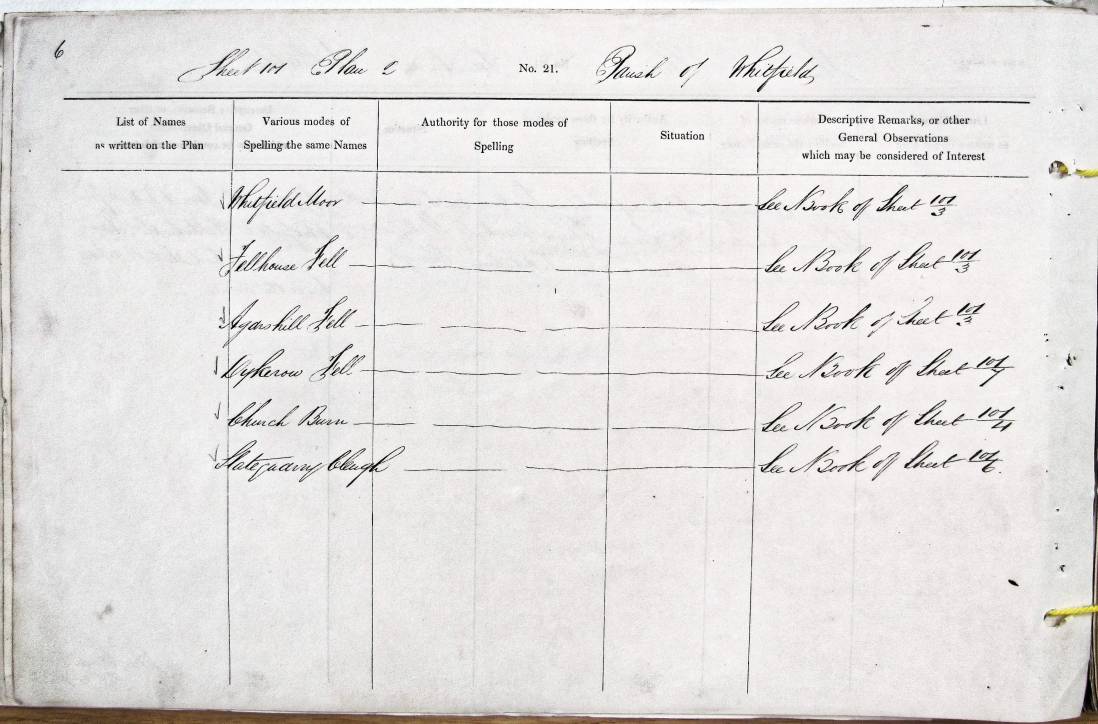 6
Sheet 101 Plan 2 No. 21. Parish of Whitfield
List of Names as written on the Plan
Various modes of Spelling the same Names
Authority for those modes of Spelling
Situation
Descriptive Remarks, or other General Observations which may be considered of Interest
Whitfield Moor See N Book of Sheet 101/3
Fellhouse Fell See N Book of Sheet 101/3
Agarshill Fell See N Book of Sheet 101/3
Dykerow Fell See N Book of Sheet 101/7
Church Burn See N Book of Sheet 101/4
Slatequarry Cleugh See N Book of Sheet 101/6.